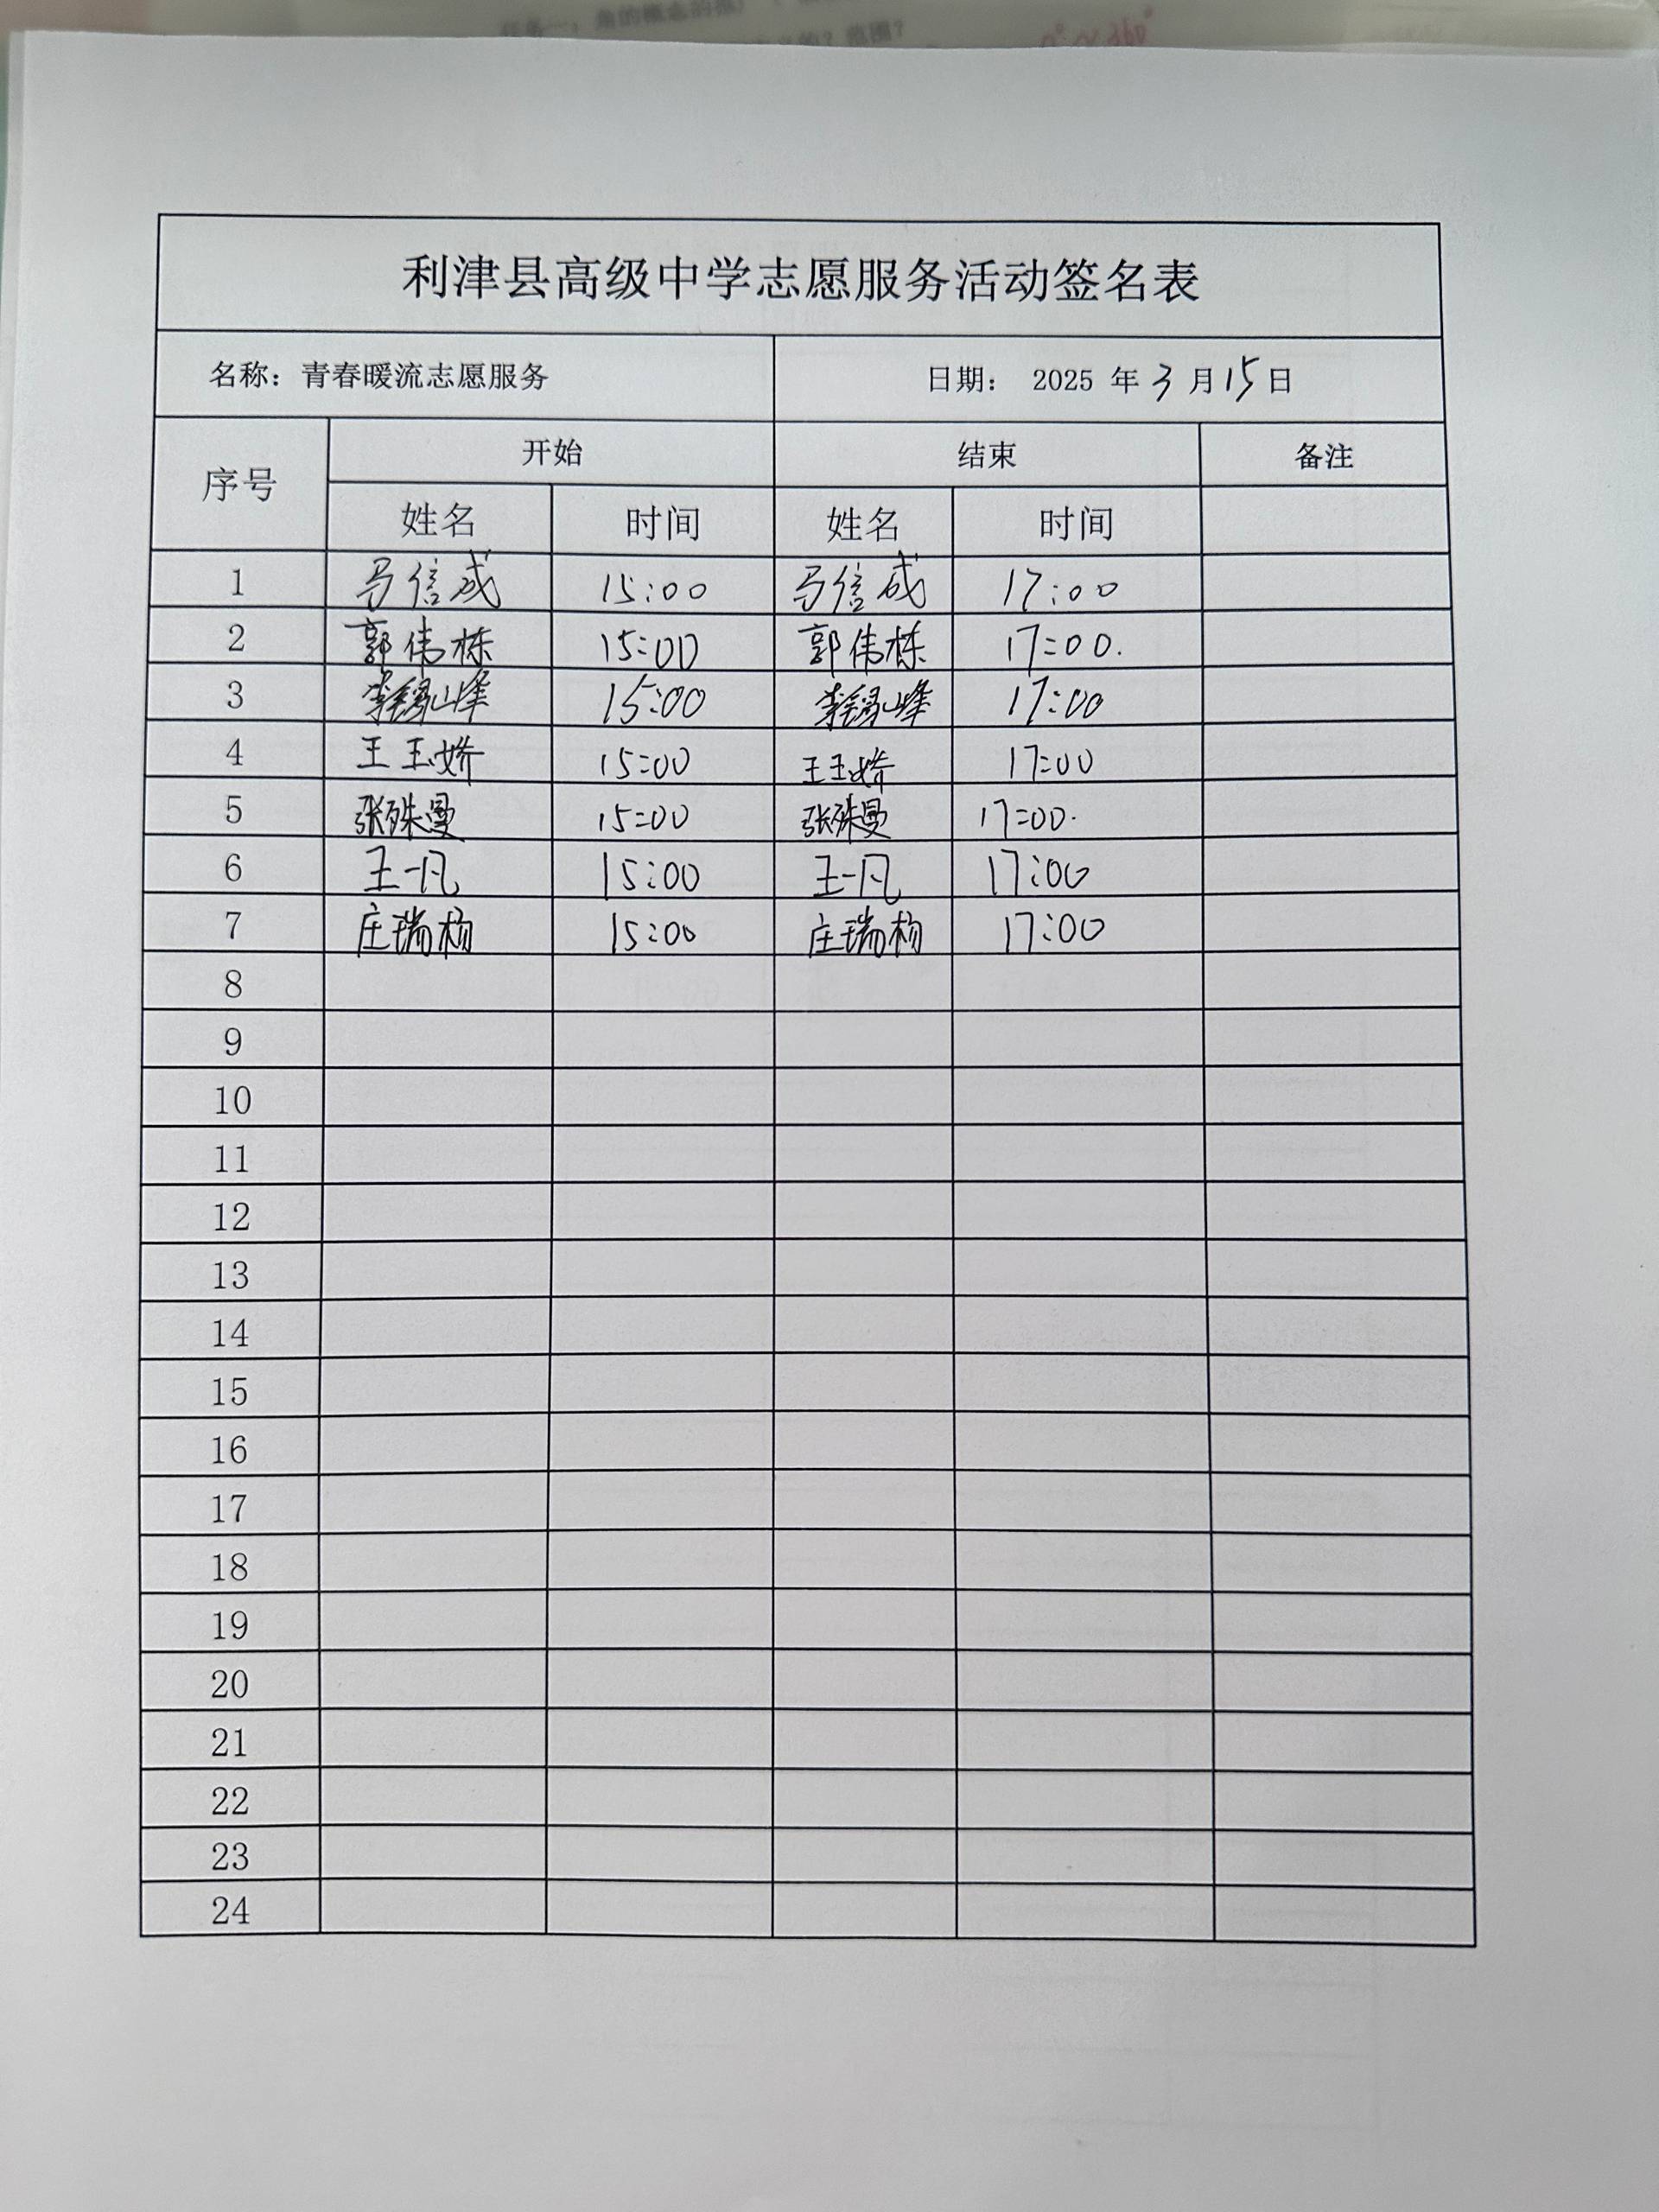 利津县高级中学志愿服务活动签名表
名称：青春暖流志愿服务 日期： 2025 年 3 月 15 日
序号 开始 结束 备注
姓名 时间 姓名 时间
1 马信成 15:00 马信成 17:00
2 郭伟栋 15:00 郭伟栋 17:00.
3 李 峰 15:00 李 峰 17:00
4 王玉娇 15:00 王玉娇 17:00
5 张殊曼 15:00 张殊曼 17:00.
6 王一凡 15:00 王一凡 17:00
7 庄瑞杨 15:00 庄瑞杨 17:00
8
9
10
11
12
13
14
15
16
17
18
19
20
21
22
23
24